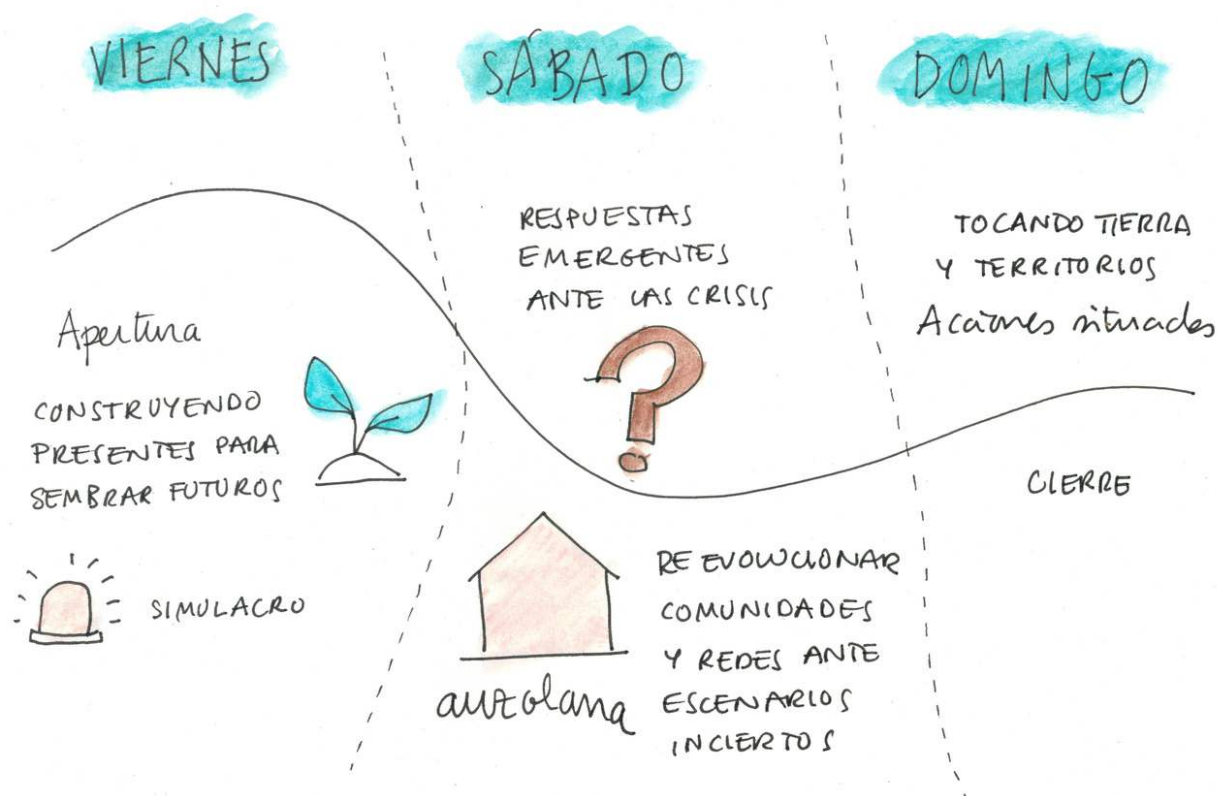 VIERNES
Apertura
CONSTRUYENDO
PRESENTES PARA
SEMBRAR FUTUROS
SIMULACRO
SÁBADO
RESPUESTAS
EMERGENTES
ANTE LAS CRISIS
auzolana
RE EVOLUCIONAR
COMUNIDADES
Y REDES ANTE
ESCENARIOS
INCIERTOS
DOMINGO
TOCANDO TIERRA
Y TERRITORIOS
Acciones situadas
CIERRE